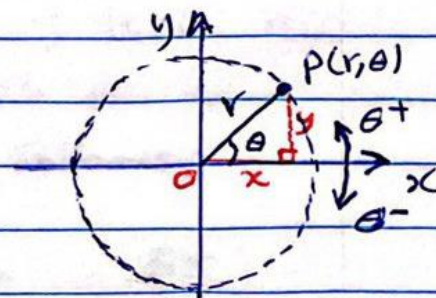 y
P(r,θ)
r
θ
y
θ+
O
x
x
θ-